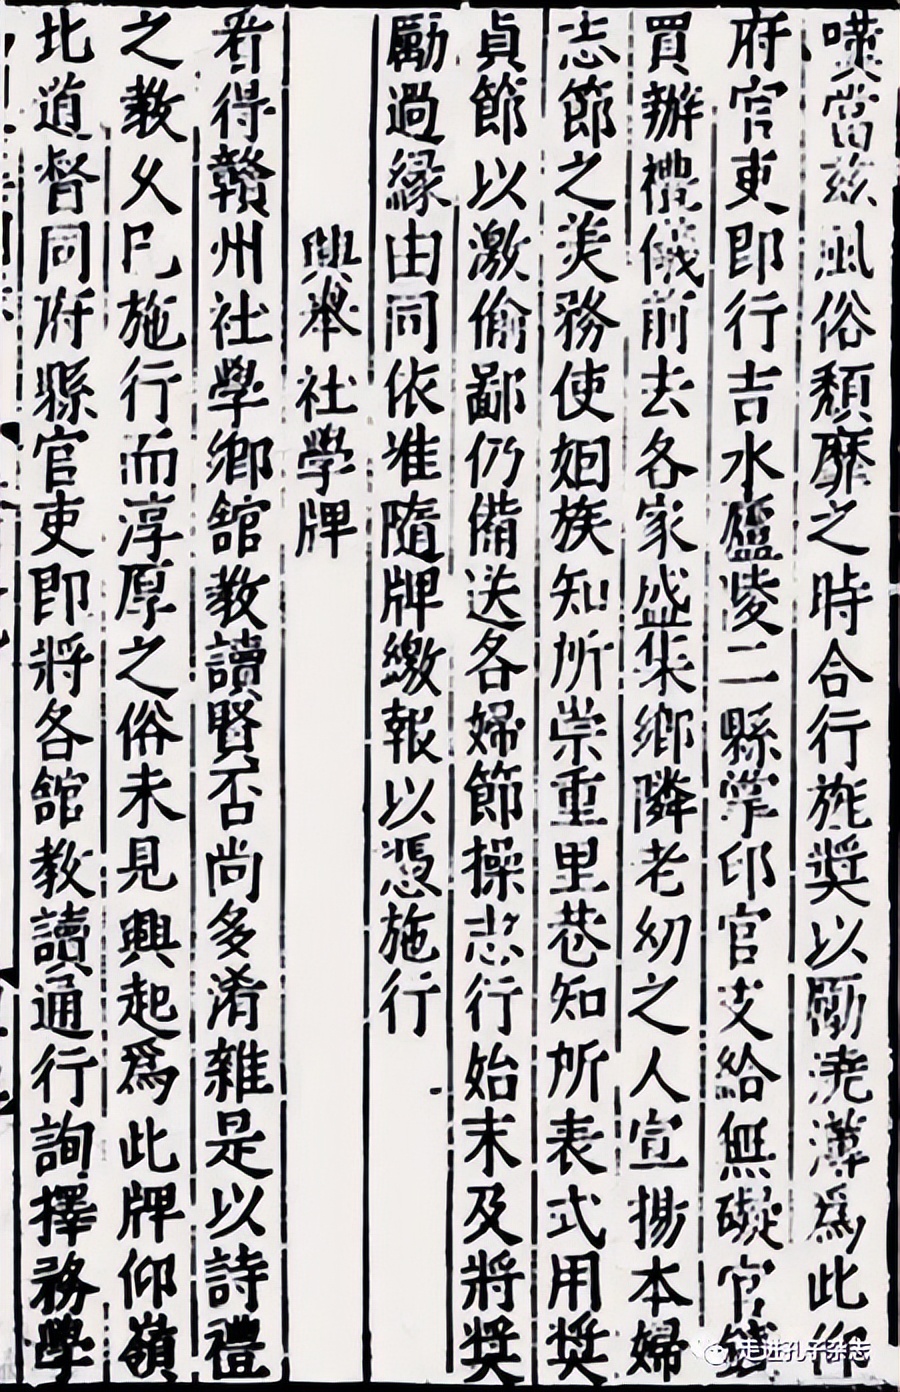 嘆當茲風俗頹靡之時合行旌奬以勵澆薄爲此仰
府官吏即行吉水廬陵二縣掌印官支給無礙官錢
買辦禮儀前去各家盛集鄉隣老幼之人宣揚本婦
志節之美務使姻族知所崇重里巷知所表式用奬
貞節以激偷鄙仍備送各婦節操志行始末及將奬
勵過緣由同依准隨牌繳報以憑施行
興舉社學牌
看得贛州社學鄉館教讀賢否尚多淆雜是以詩禮
之教久已施行而淳厚之俗未見興起爲此牌仰嶺
北道督同府縣官吏即將各館教讀通行詢擇務學
走进孔子杂志